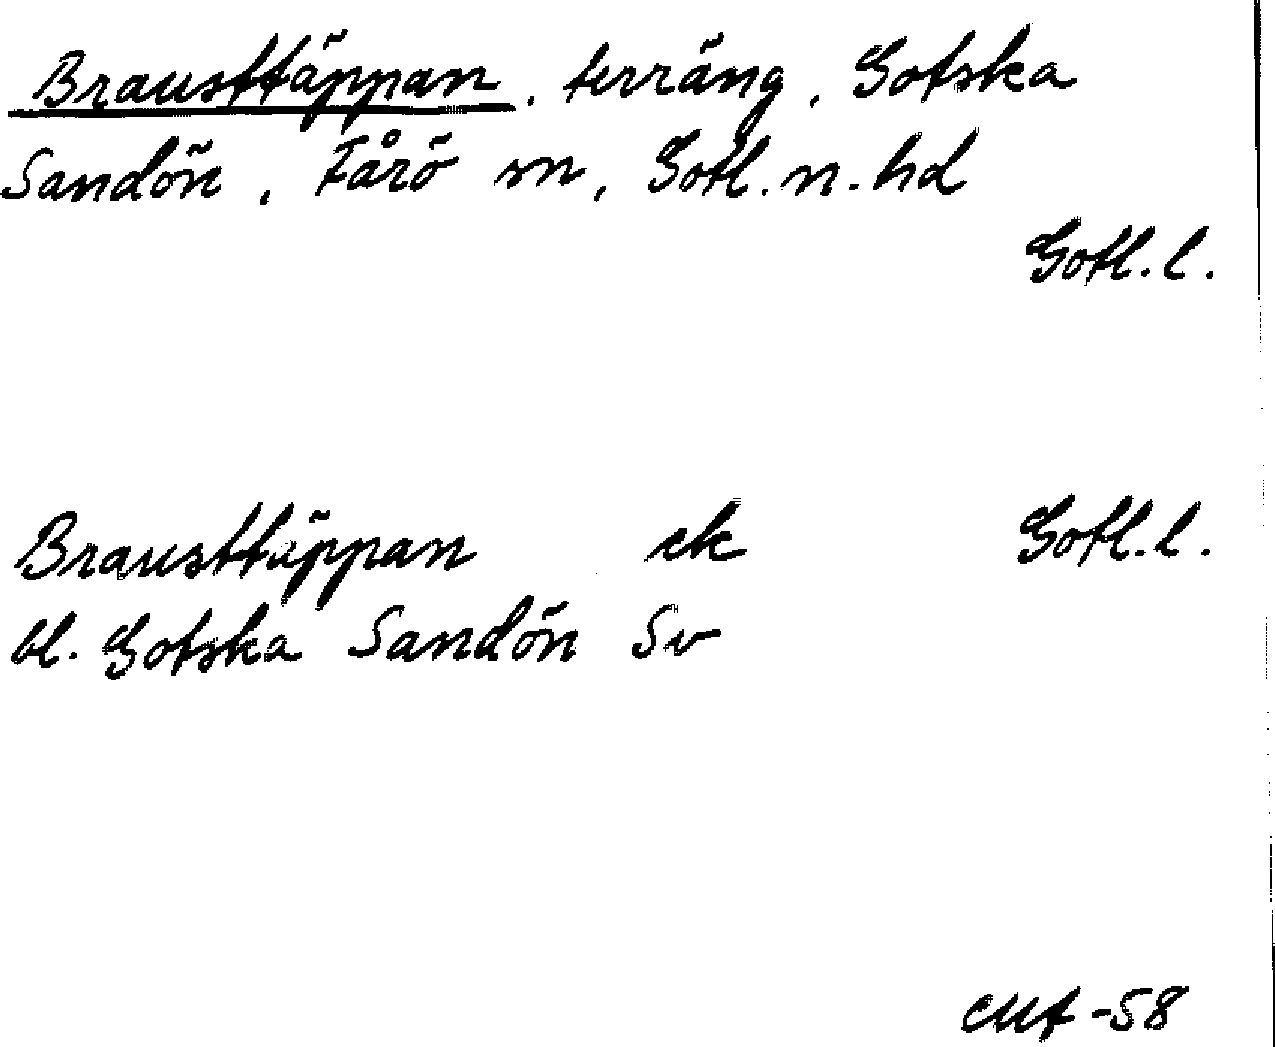 Brausttäppan, terräng, Gotska
Sandön, Fårö sn, Gotl. n. hd
Gotl. l.
Brausttäppan ek Gotl. l.
bl. Gotska Sandön Sv
-58